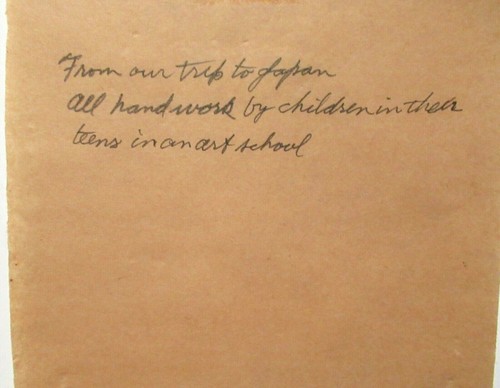 From our trip to Japan
All handwork by children in their
teens in an art school